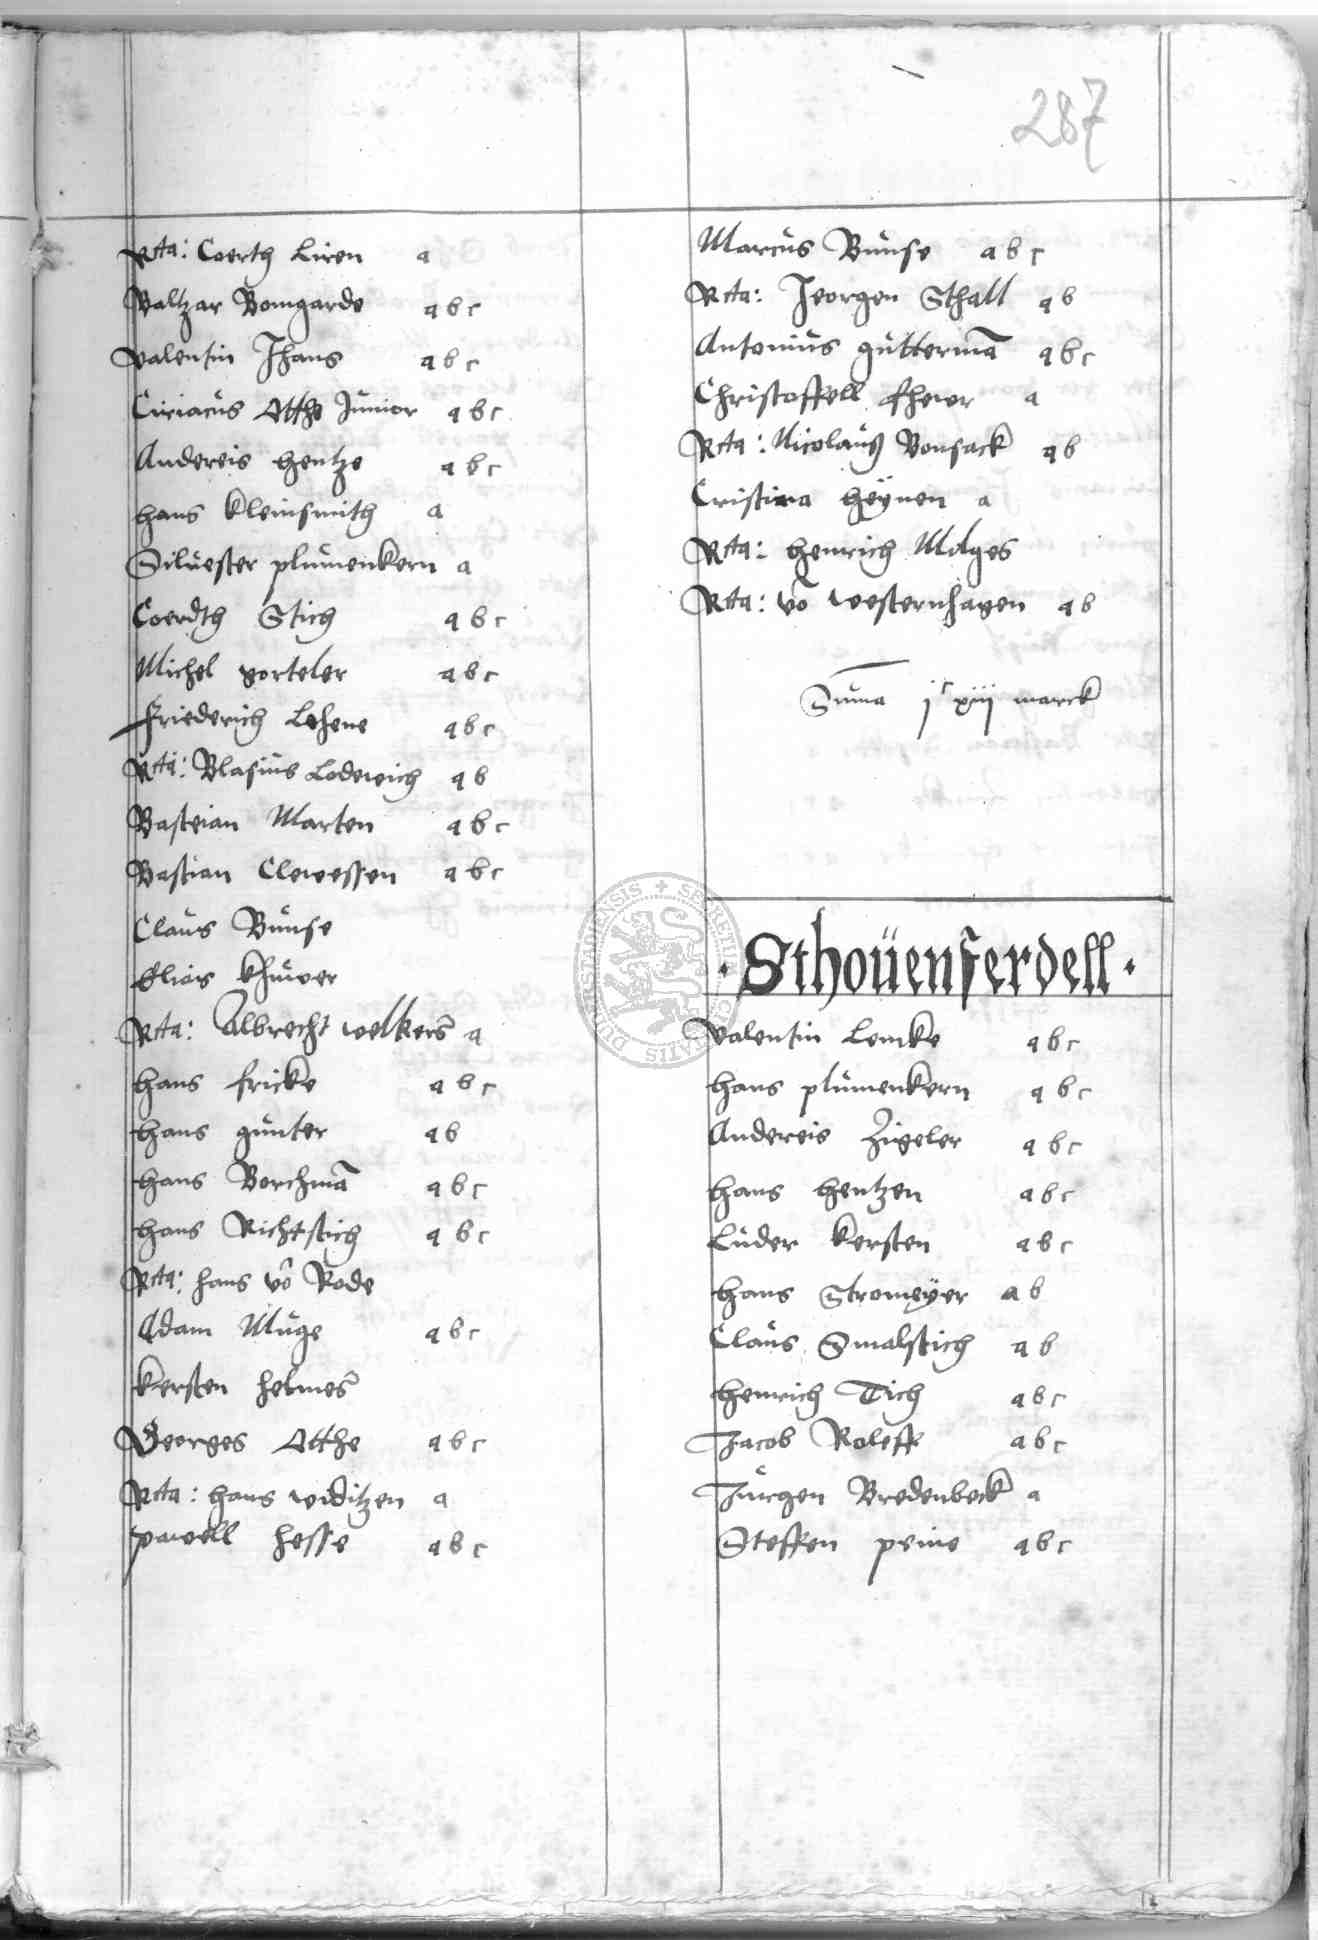 287
Rta: Coerth Liren a
Baltzar Bomgarde a b c
Valentin Jhans a b c
Ciriacus Otthe Junior a b c
Andereis Hentze a b c
Hans Kleinsmith a
Siluester plumenkern a
Coerdth Stich a b c
Michel vorteler a b c
Friederich Lehene a b c
Rta: Blasius Lodewich a b
Basteian Marten a b c
Bastian Clewessen a b c
Claus Bunse
Elias
Rta: Albrecht welkers a
Hans fricke a b c
Hans gunter a b
Hans Borchmā a b c
Hans Richtstich a b c
Rta: Hans vō Rode
Adam Muge a b c
Kersten Helmes
Georges Otthe a b c
Rta: Hans widitzen a
pawell Hesse a b c
Marcus Bunse a b c
Rta: Jeorgen Sthall a b
Antonius guttermā a b c
Christoffell fheier a
Rta: Nicolaus Bonsack a b
Cristina Heÿnen a
Rta: Henrich Molges
Rta: vō westernhagen a b
Suma jᶜ xiij marck
· Sthoüenferdell ·
Valentin Lemke a b c
Hans plumenkern a b c
Andereis Zigeler a b c
Hans Hentzen a b c
Luder Kersten a b c
Hans Stromeÿer a b
Claus Smalstich a b
Henrich Tich a b c
Jacob Roleff a b c
Jurgen Bredenbeck a
Steffen peine a b c